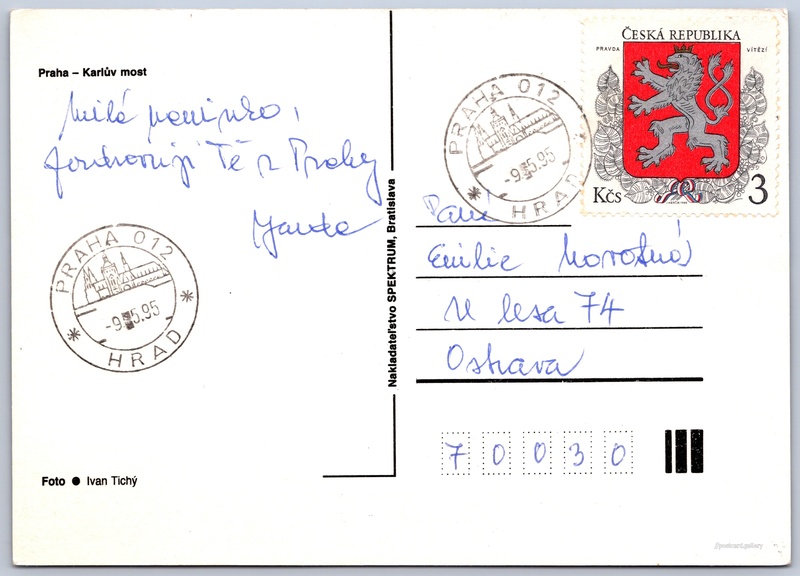 Praha – Karlův most
Milá maminko,
pozdravuji Tě z Prahy
PRAHA 012
-9.-5.95
HRAD
Foto ● Ivan Tichý
Nakladateľstvo SPEKTRUM, Bratislava
PRAHA 012
-9.-5.95
HRAD
ČESKÁ REPUBLIKA
PRAVDA VÍTĚZÍ
Kčs 3
Paní
Emilie
U lesa 74
Ostrava
70030
//postcard.gallery